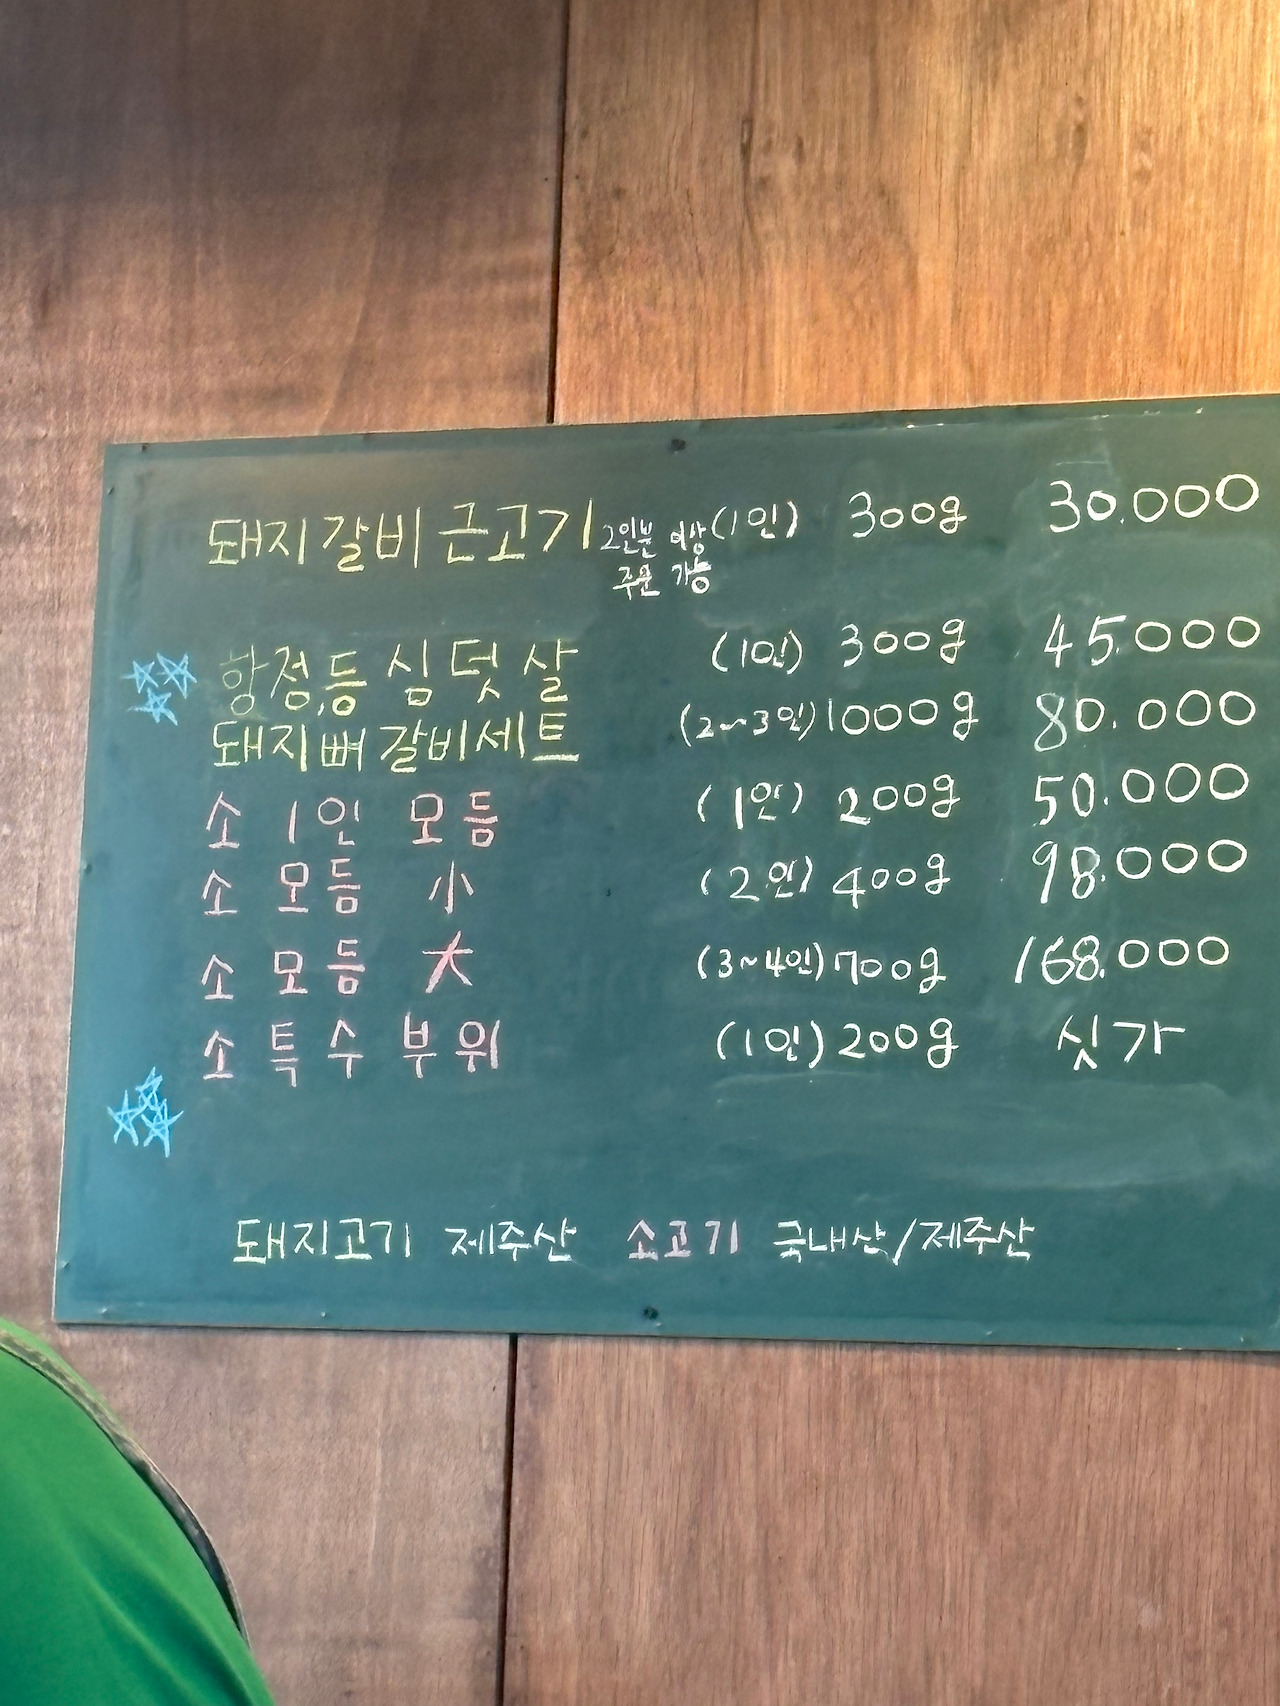 돼지갈비근고기 2인분 이상 주문 가능 (1인) 300g 30.000
항정,등심덧살 (1인) 300g 45.000
돼지뼈갈비세트 (2~3인) 1000g 80.000
소 1인 모듬 (1인) 200g 50.000
소 모듬 小 (2인) 400g 98.000
소 모듬 大 (3~4인) 700g 168.000
소 특수부위 (1인) 200g 싯가
돼지고기 제주산 소고기 국내산/제주산